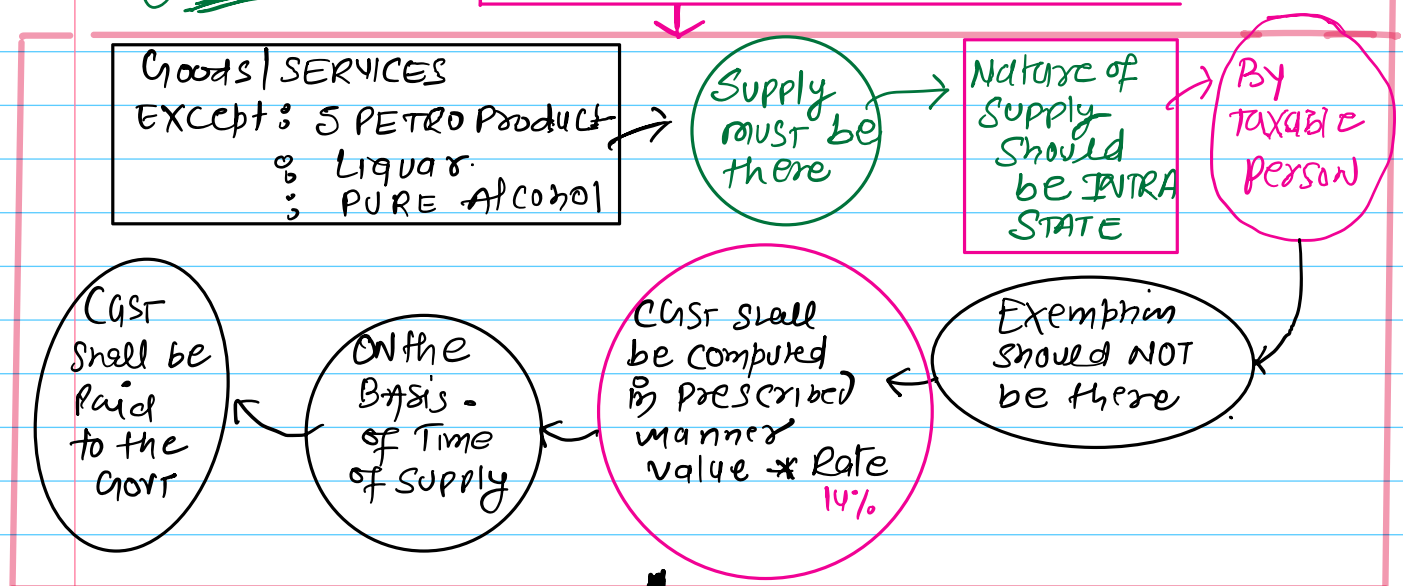 Goods / SERVICES
EXCEPT : 5 PETRO Product
: Liquar.
: PURE Alcohol
Supply
must be
there
Nature of
Supply
Should
be INTRA
STATE
By
Taxable
Person
Exemption
should NOT
be there
CGST shall
be computed
in prescribed
manner
value * Rate
14%
ON the
BASis.
of Time
of Supply
CGST
shall be
Paid
to the
Govt